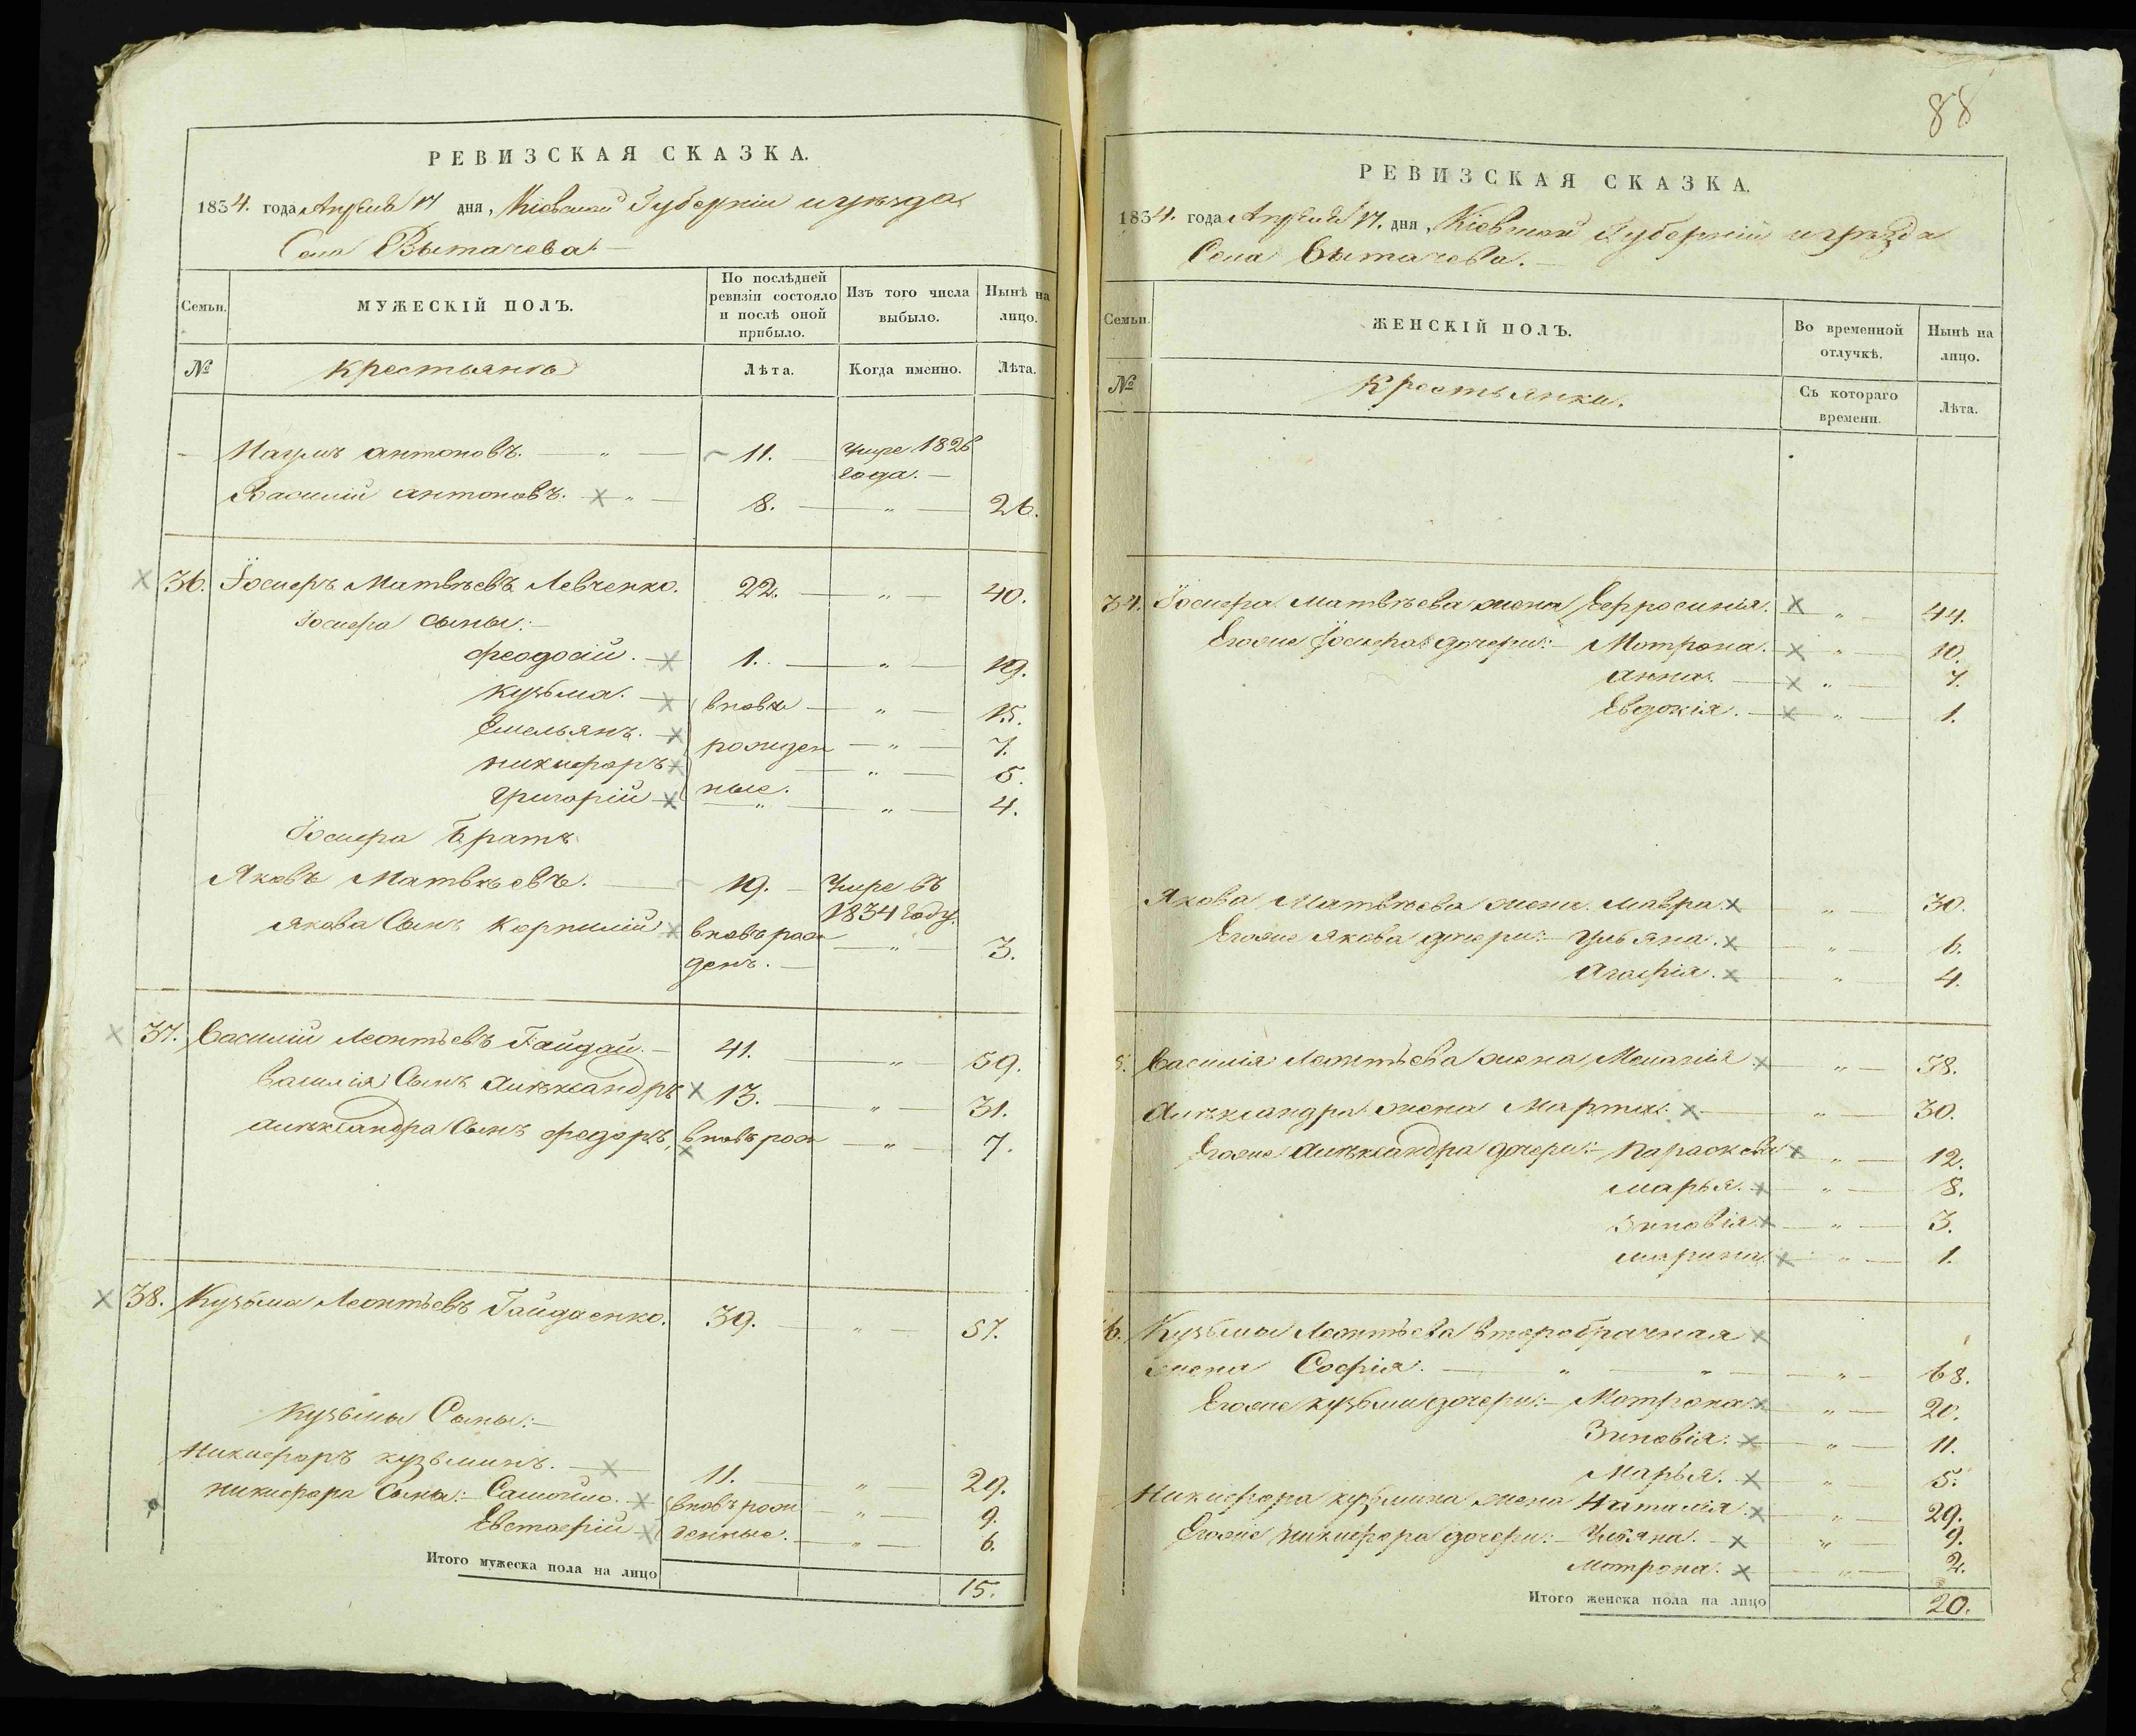 РЕВИЗСКАЯ СКАЗКА.
1834. года Апреля 17 дня, Кіевской Губерніи и уѣзда
Села Вытачева. —
Семьи.
МУЖЕСКІЙ ПОЛЪ.
По послѣдней ревизіи состояло и послѣ оной прибыло.
Изъ того числа выбыло.
Нынѣ на лицо.
№
Крестьянъ
Лѣта.
Когда именно.
Лѣта.
Наумъ Антоновъ. — „ — 11. Умре 1826
года. —
Василій Антоновъ. × „ — 8. — „ — 26.
× 36. Іосифъ Матвѣевъ Левченко. 22. — „ — 40.
Іосифа Сыны: —
Феодосій. — × 1. — „ — 19.
Кузьма. — × вновь — „ — 15.
Емельянъ. — × рожден — „ — 7.
Никифоръ × — „ — 5.
Григорій × ные. — „ — 4.
Іосифа Братъ
Яковъ Матвѣевъ. — 19. — Умре въ
1834 Году.
Якова Сынъ Корнилій × вновь рож — „ — 3.
денъ. —
× 37. Василій Леонтьевъ Гайдай. — 41. — „ — 59.
Василія Сынъ Алѣксандръ × 13. — „ — 31.
Алѣксандра Сынъ Федоръ, вновь рож × — „ — 7.
× 38. Кузьма Леонтьевъ Гайдаенко. 39. — „ — 57.
Кузьмы Сыны: —
Никифоръ Кузьминъ. — × 11. — „ — 29.
Никифора Сыны: — Самойло. × вновь рож — „ — 9.
Евстафій × денные. — „ — 6.
Итого мужеска пола на лицо 15.
88
РЕВИЗСКАЯ СКАЗКА.
1834. года Апреля 17. дня, Кіевской Губерніи и уѣзда
Села Вытачева. —
Семьи.
ЖЕНСКІЙ ПОЛЪ.
Во временной отлучкѣ.
Нынѣ на лицо.
№
Крестьянки.
Съ котораго времени.
Лѣта.
34. Іосифа Матвѣева жена Ефросинія. × „ — 44.
Егоже Іосифа дочери: — Мотрона. × „ — 10.
Анна. — × „ — 7.
Евдокія. — × „ — 1.
Якова Матвѣева жена Мавра × — „ — 30.
Егоже Якова дочери: — Ульяна. × — „ — 6.
Агафія. × — „ — 4.
5. Василія Леонтьева жена Меланія × — „ — 58.
Алѣксандра жена Марта. × — „ — 30.
Егоже Алѣксандра дочери: — Параскевія × „ — 12.
Марья. × „ — 8.
Зиновія. × — „ — 3.
Марина × — „ — 1.
6. Кузьмы Леонтьева второбрачная ×
жена Софія. — „ — „ — „ — 68.
Егоже Кузьмы дочери: — Мотрона × — „ — 20.
Зиновія. × — „ — 11.
Марья. × — „ — 5.
Никифора Кузьмина жена Наталія. × — „ — 29.
Егоже Никифора дочери: — Ульяна. — × „ — 9.
Мотрона. × — „ — 2.
Итого женска пола на лицо 20.